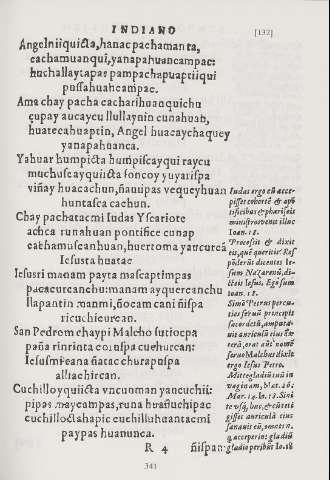 INDIANO
[132]
Angelniiquicta, hanac pachamanta,
cachamuanqui, yanapahuancampac:
huchallaytapas pampachapuaptiiqui
pussahuahcampac.
Ama chay pacha cacharihuanquichu
çupay aucaycu llullaynin cunahuan,
huatecahuaptin, Angel huacaychaquey
yanapahuanca.
Yahuar humpicta humpiscayqui raycu
muchuscayquiicta soncoy yuyarispa
viñay huacachun, ñauipas vequeyhuan
huntasca cachun.
Chay pachatacmi Iudas Yscariote
achca runahuan pontifice cunap
cachamuscanhuan, huertoma yaucurca
Iesusta huatac
Iesusri manam payta mascaptimpas
pacaeucurcanchu: manam ayquercanchu
llapantin manmi, ñocam cani ñispa
ricuchicurcan.
San Pedrom chaypi Malcho sutiocpa
paña rinrinta
Iesusmi
allíachircan.
Cuchilloyquiicta vncuoman yaucuchij:
pipas maycampas, runa huañuchipac
cuchillocta hapic cuchilluhuantacmi
paypas huanunca.
R 4 ñispan:
Iudas ergo cũ acce-
pisset cohortē & a põ
tificibus & phariseis
ministros venit illuc
Ioan. 18.
Processit & dixit
eis, quē queritis? Res
põderūt dicentes Ie-
sum Nazarenũ, di-
cit eis Iesus, Ego sum
Ioan. 18.
Simõ Petrus percu-
tiēs seruũ principis
sacerdotũ, amputa-
uit auriculã eius dex
terã, erat autē nomē
seruo Malchus dixit
ergo Iesus Petro.
Mitte gladiũ tuũ in
vaginam, Mat. 26.
Mar. 14. Io. 18. Sini
te vsq; huc, & cũ teti
gisset auriculã eius
sanauit eũ, omnes n.
q; acceperint gladiũ
gladio peribũt Io. 18
341